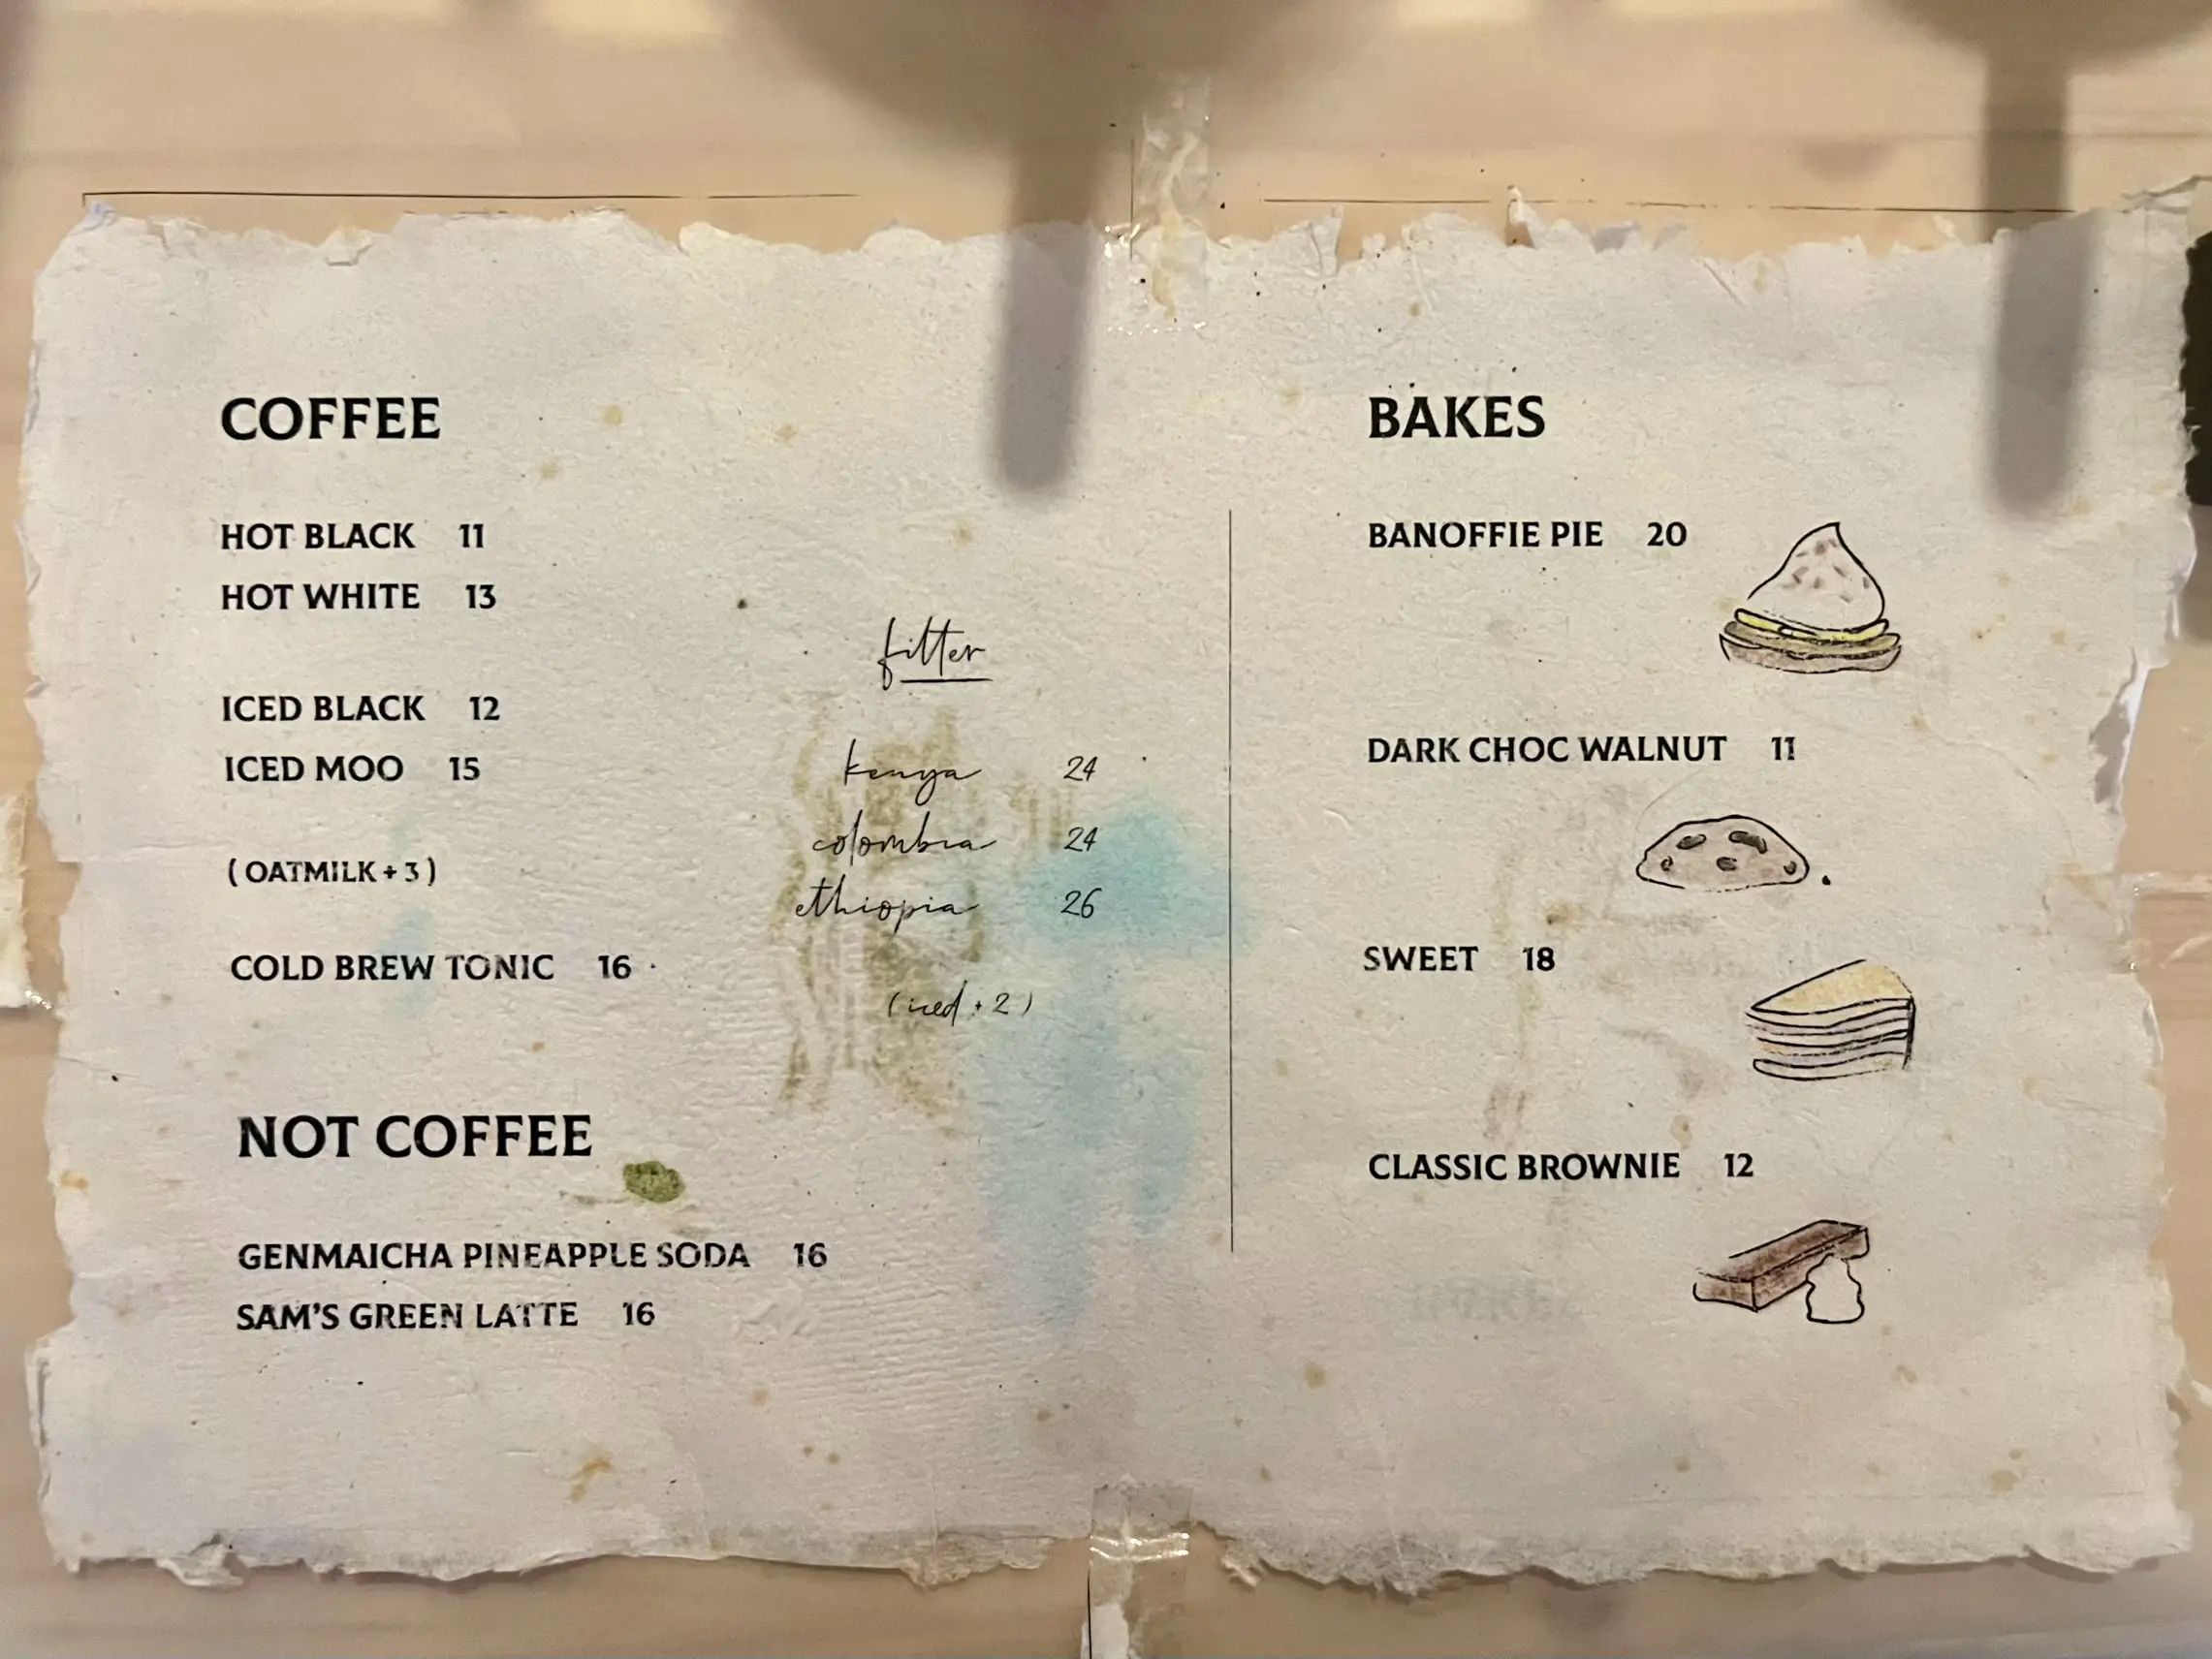 COFFEE
HOT BLACK 11
HOT WHITE 13
ICED BLACK 12
ICED MOO 15
( OATMILK + 3 )
COLD BREW TONIC 16
filter
kenya 24
colombia 24
ethiopia 26
( iced + 2 )
NOT COFFEE
GENMAICHA PINEAPPLE SODA 16
SAM'S GREEN LATTE 16
BAKES
BANOFFIE PIE 20
DARK CHOC WALNUT 11
SWEET 18
CLASSIC BROWNIE 12